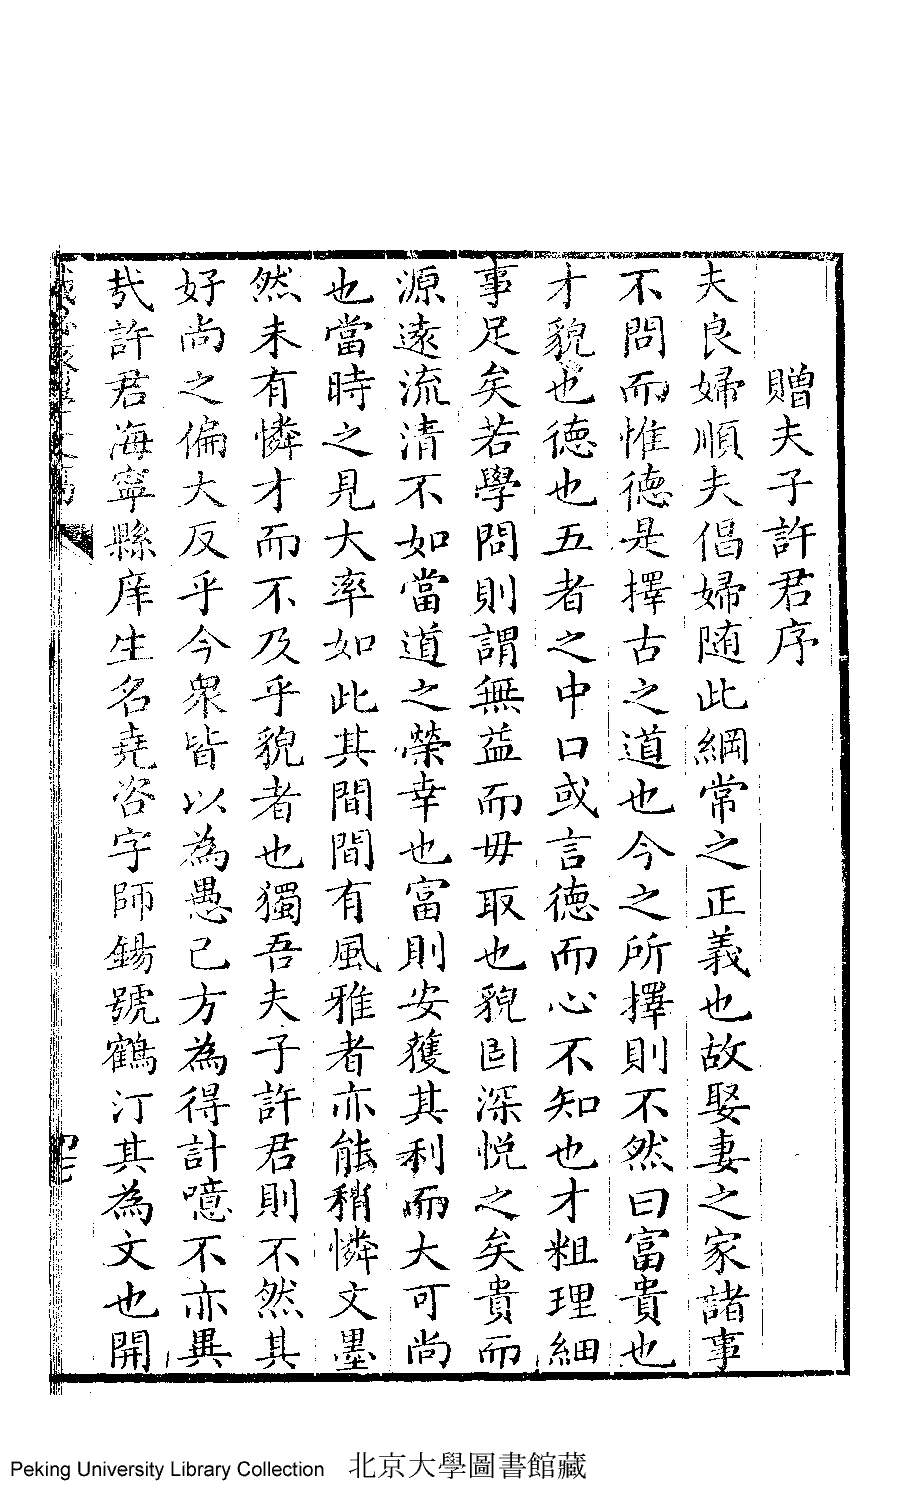 贈夫子許君序
夫良婦順夫倡婦随此綱常之正義也故娶妻之家諸事
不問而惟德是擇古之道也今之所擇則不然曰富貴也
才貌也德也五者之中口或言德而心不知也才粗理細
事足矣若學問則謂無益而毋取也貌固深悦之矣貴而
源遠流清不如當道之榮幸也富則安獲其利而大可尚
也當時之見大率如此其間間有風雅者亦能稍憐文墨
然未有憐才而不及乎貌者也獨吾夫子許君則不然其
好尚之偏大反乎今衆皆以為愚己方為得計噫不亦異
㢤許君海寧縣庠生名堯咨字師錫號鶴汀其為文也開
Peking University Library Collection 北京大學圖書館藏